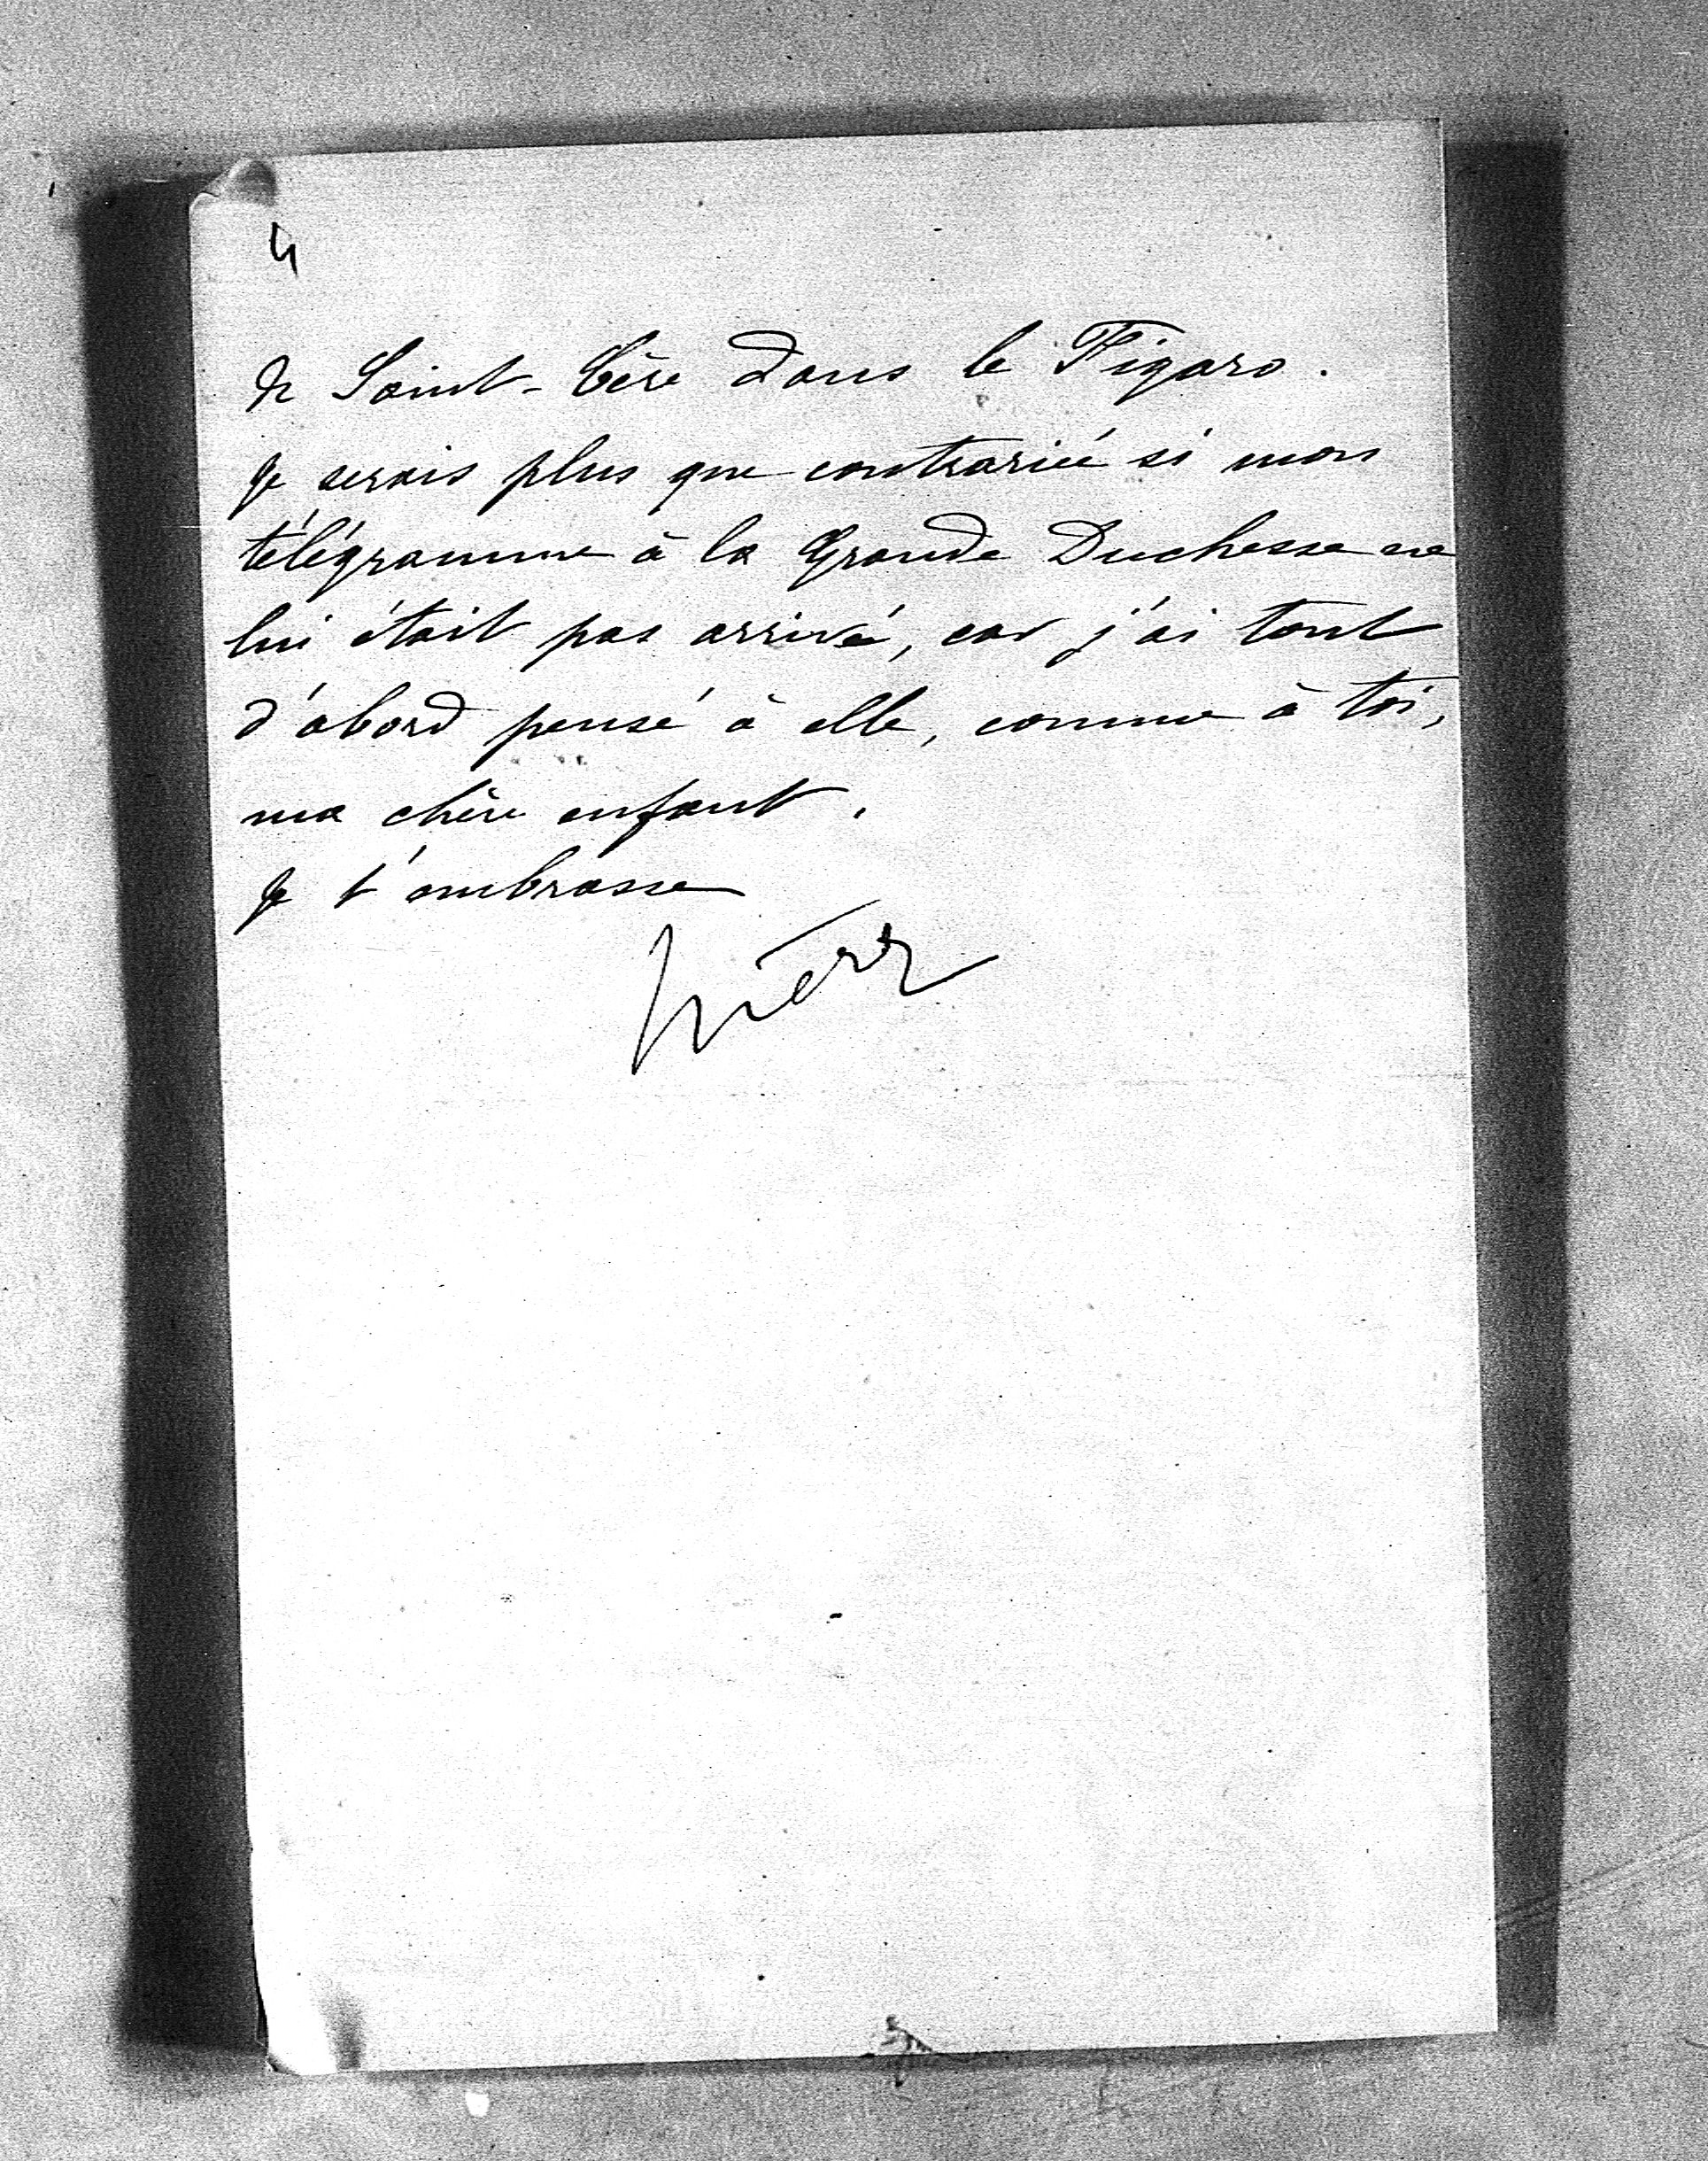 4
de Saint-Cère dans le Figaro.
Je serais plus que contrariée si mon
télégramme à la Grande Duchesse ne
lui était pas arrivé, car j'ai tout
d'abord pensé à elle, comme à toi,
ma chère enfant.
Je t'embrasse